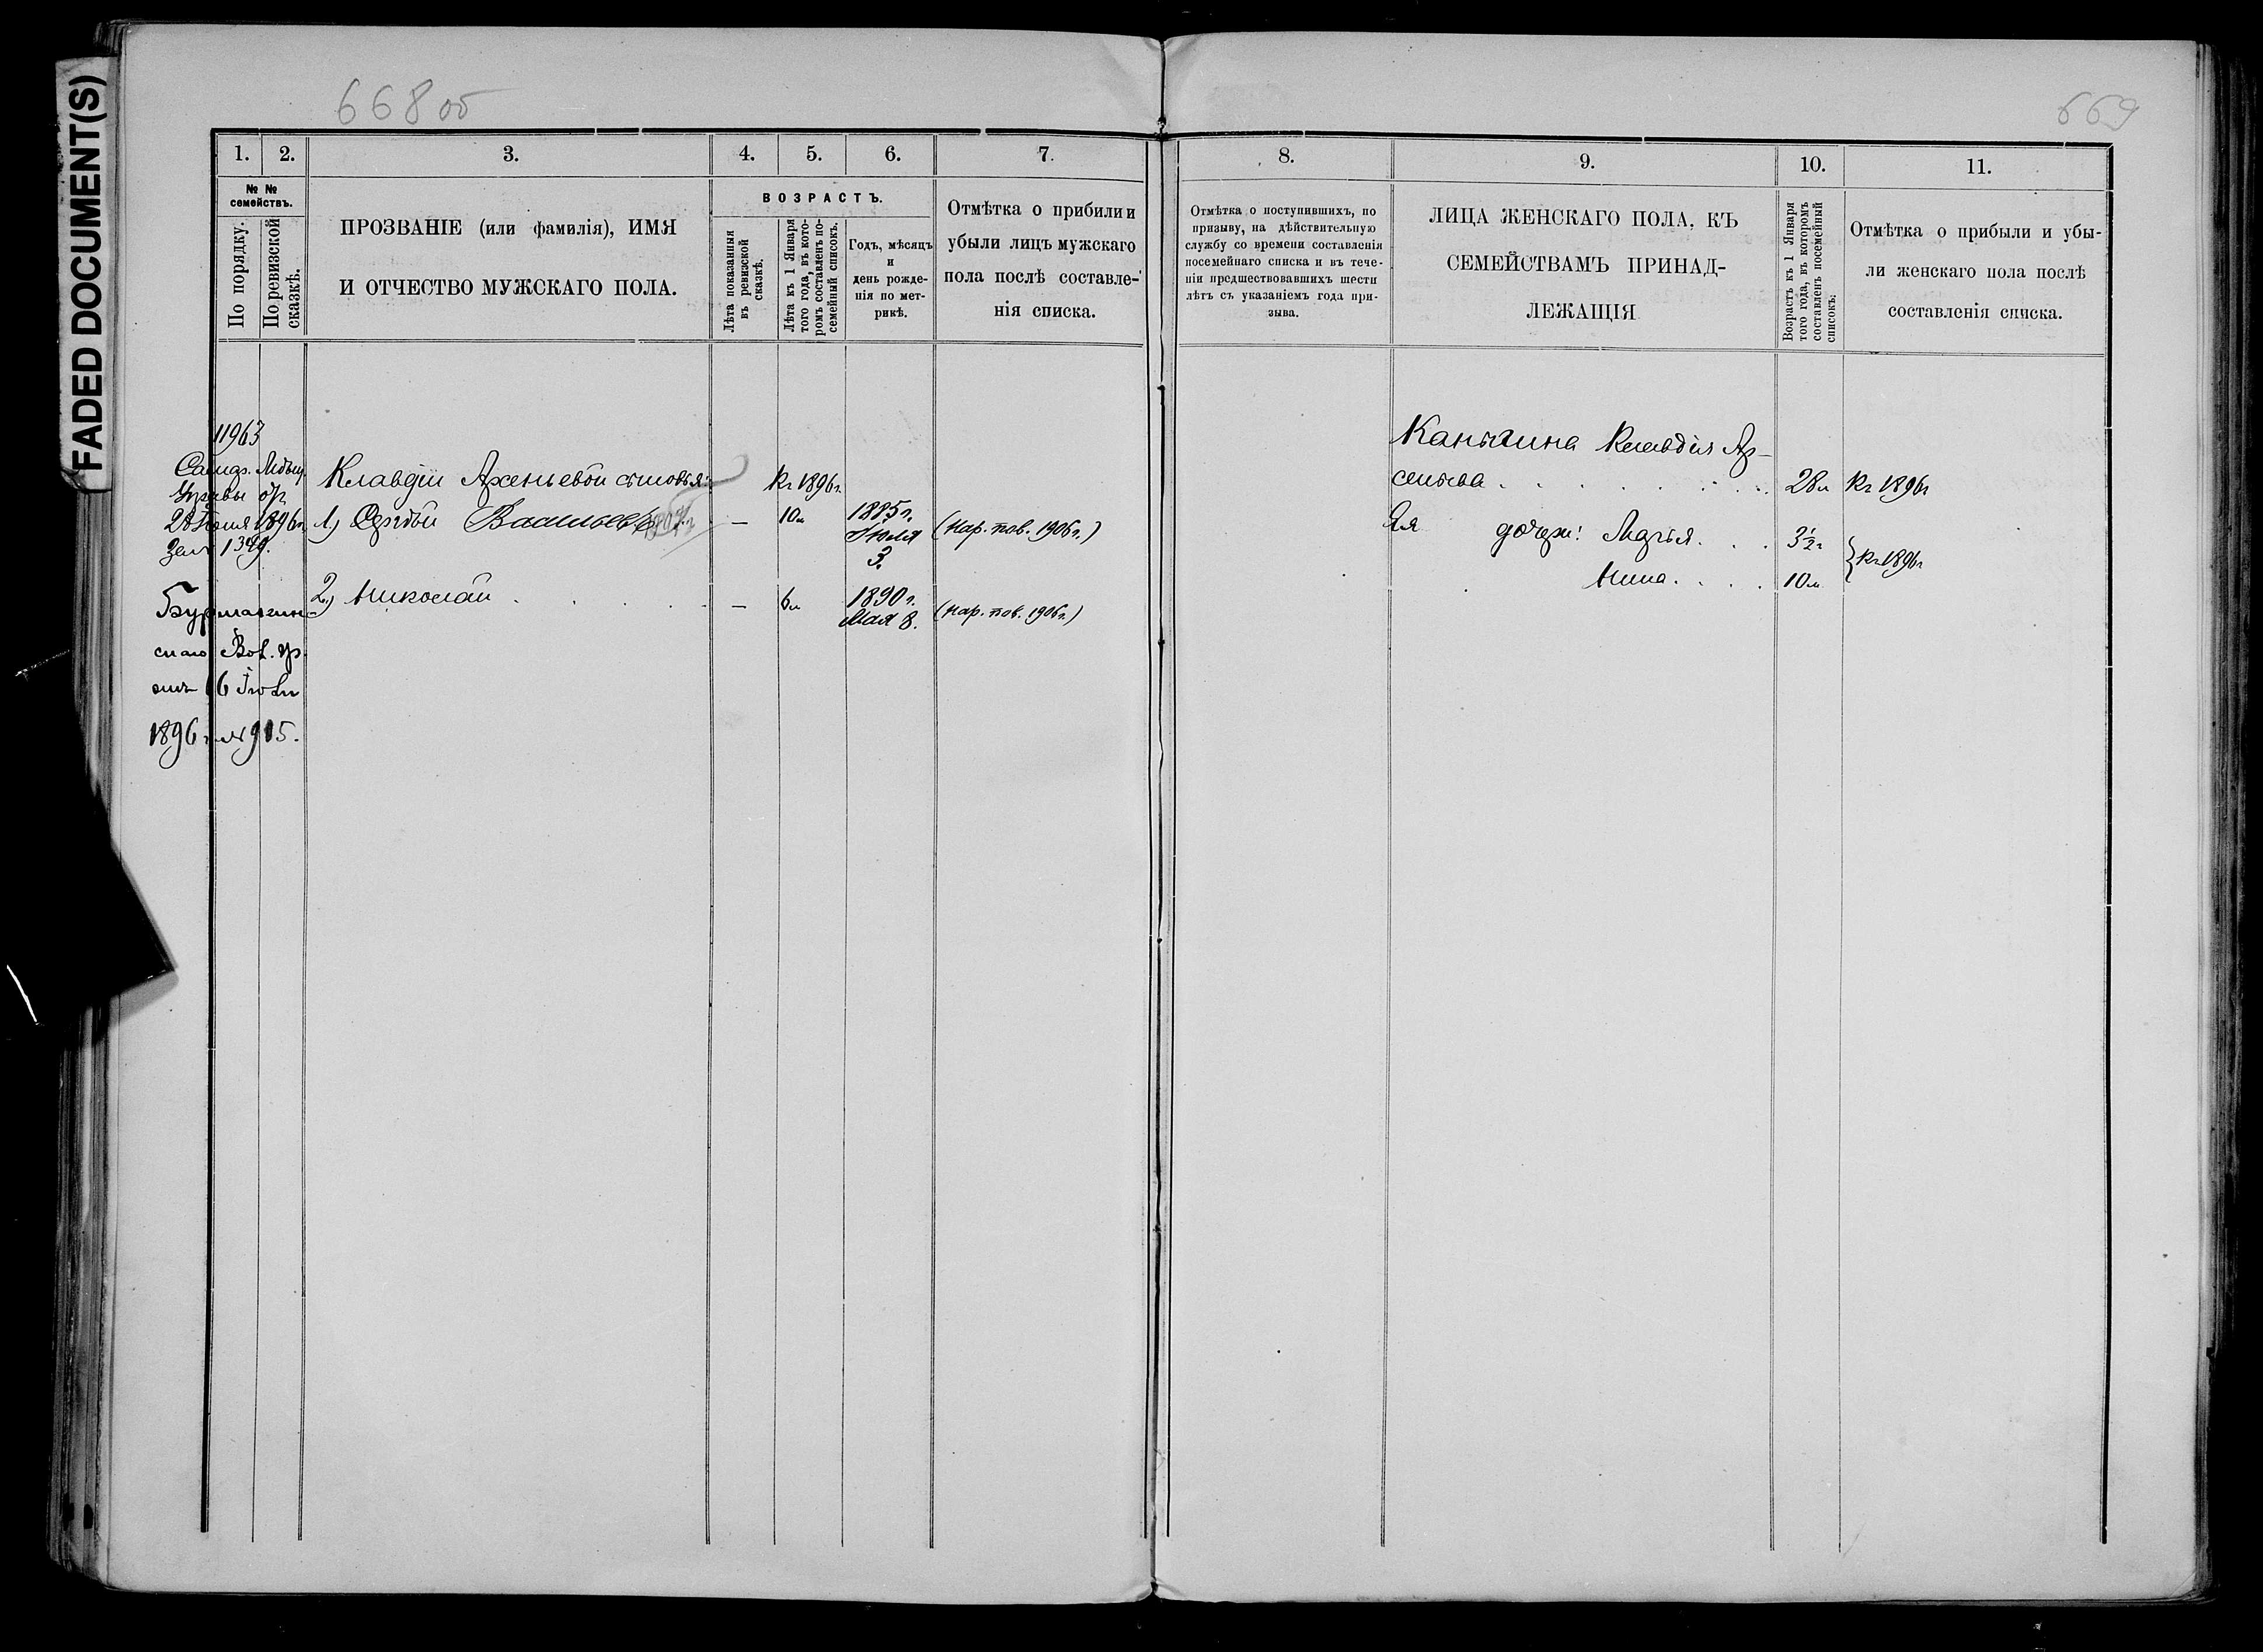 FADED DOCUMENT(S)
668 об
669
1. 2. 3. 4. 5. 6. 7.
№ №
семействъ.
По порядку.
По ревизской
сказкѣ.
ПРОЗВАНІЕ (или фамилія), ИМЯ
И ОТЧЕСТВО МУЖСКАГО ПОЛА.
ВОЗРАСТЪ.
Лѣта показанныя
въ ревизской
сказкѣ.
Лѣта къ 1 Января
того года, въ кото-
ромъ составленъ по-
семейный списокъ.
Годъ, мѣсяцъ
и
день рожде-
нія по мет-
рикѣ.
Отмѣтка о прибыли и
убыли лицъ мужскаго
пола послѣ составле-
нія списка.
11963
Управы от
28 Іюня 1896 г.
за № 1349.
Клавдіи Арсеньевой сыновья:
къ 1896 г.
1) Сергѣй Васильевъ
— 10 л.
1885 г.
Іюля
3.
(нар. пов. 1906 г.)
2) Николай
— 6 л.
1890 г.
Мая 8.
(нар. пов. 1906 г.)
Бурмакин-
скаго Вол. пр.
отъ 16 Іюля
1896 г. № 915.
8. 9. 10. 11.
Отмѣтка о поступившихъ, по
призыву, на дѣйствительную
службу со времени составленія
посемейнаго списка и въ тече-
ніи предшествовавшихъ шести
лѣтъ съ указаніемъ года при-
зыва.
ЛИЦА ЖЕНСКАГО ПОЛА, КЪ
СЕМЕЙСТВАМЪ ПРИНАД-
ЛЕЖАЩІЯ
Возрастъ къ 1 Января
того года, въ которомъ
составленъ посемейный
списокъ.
Отмѣтка о прибыли и убы-
ли женскаго пола послѣ
составленія списка.
Клавдія Ар-
сеньева . . . . . . . 28 л. къ 1896 г.
Ея дочери: Лидія . . . 3½ г.
къ 1896 г.
Нина . . . . 10 м.